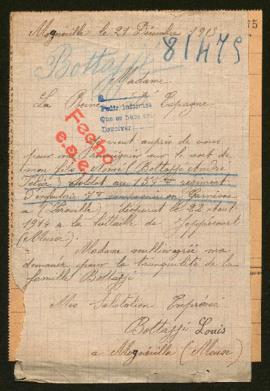 Mognéville le 21 Décembre 1915
75
81475
Bottaffi
Madame
La Reine d'Espagne
Pedir informes
Que se hace
Devolver
Fecho
auprès de vous
pour le sort de
mon fils Nomé (Bottaffi André
Soldat au 155me régiment
d'infanterie 5me compagnie en Garnison
a disparut le 22 Aout
1914 a la bataille de Joppécourt
(Meuse).
Madame veuillez agrée ma
demande pour la tranquilité de la
famille Bottaffi
Mes Salutation Empressé
Bottaffi Louis
a Mognéville (Meuse)